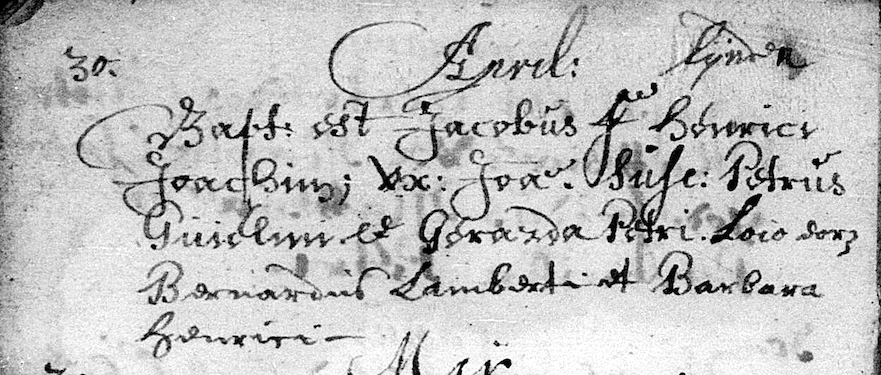 30. April:
Bapt: est Jacobus f. Henrici
Joachimi; vx: Joa. Susc: Petrus
Guielmi et Gerarda Petri. Loco eorz
Bernardus Lamberti et Barbara
Henrici